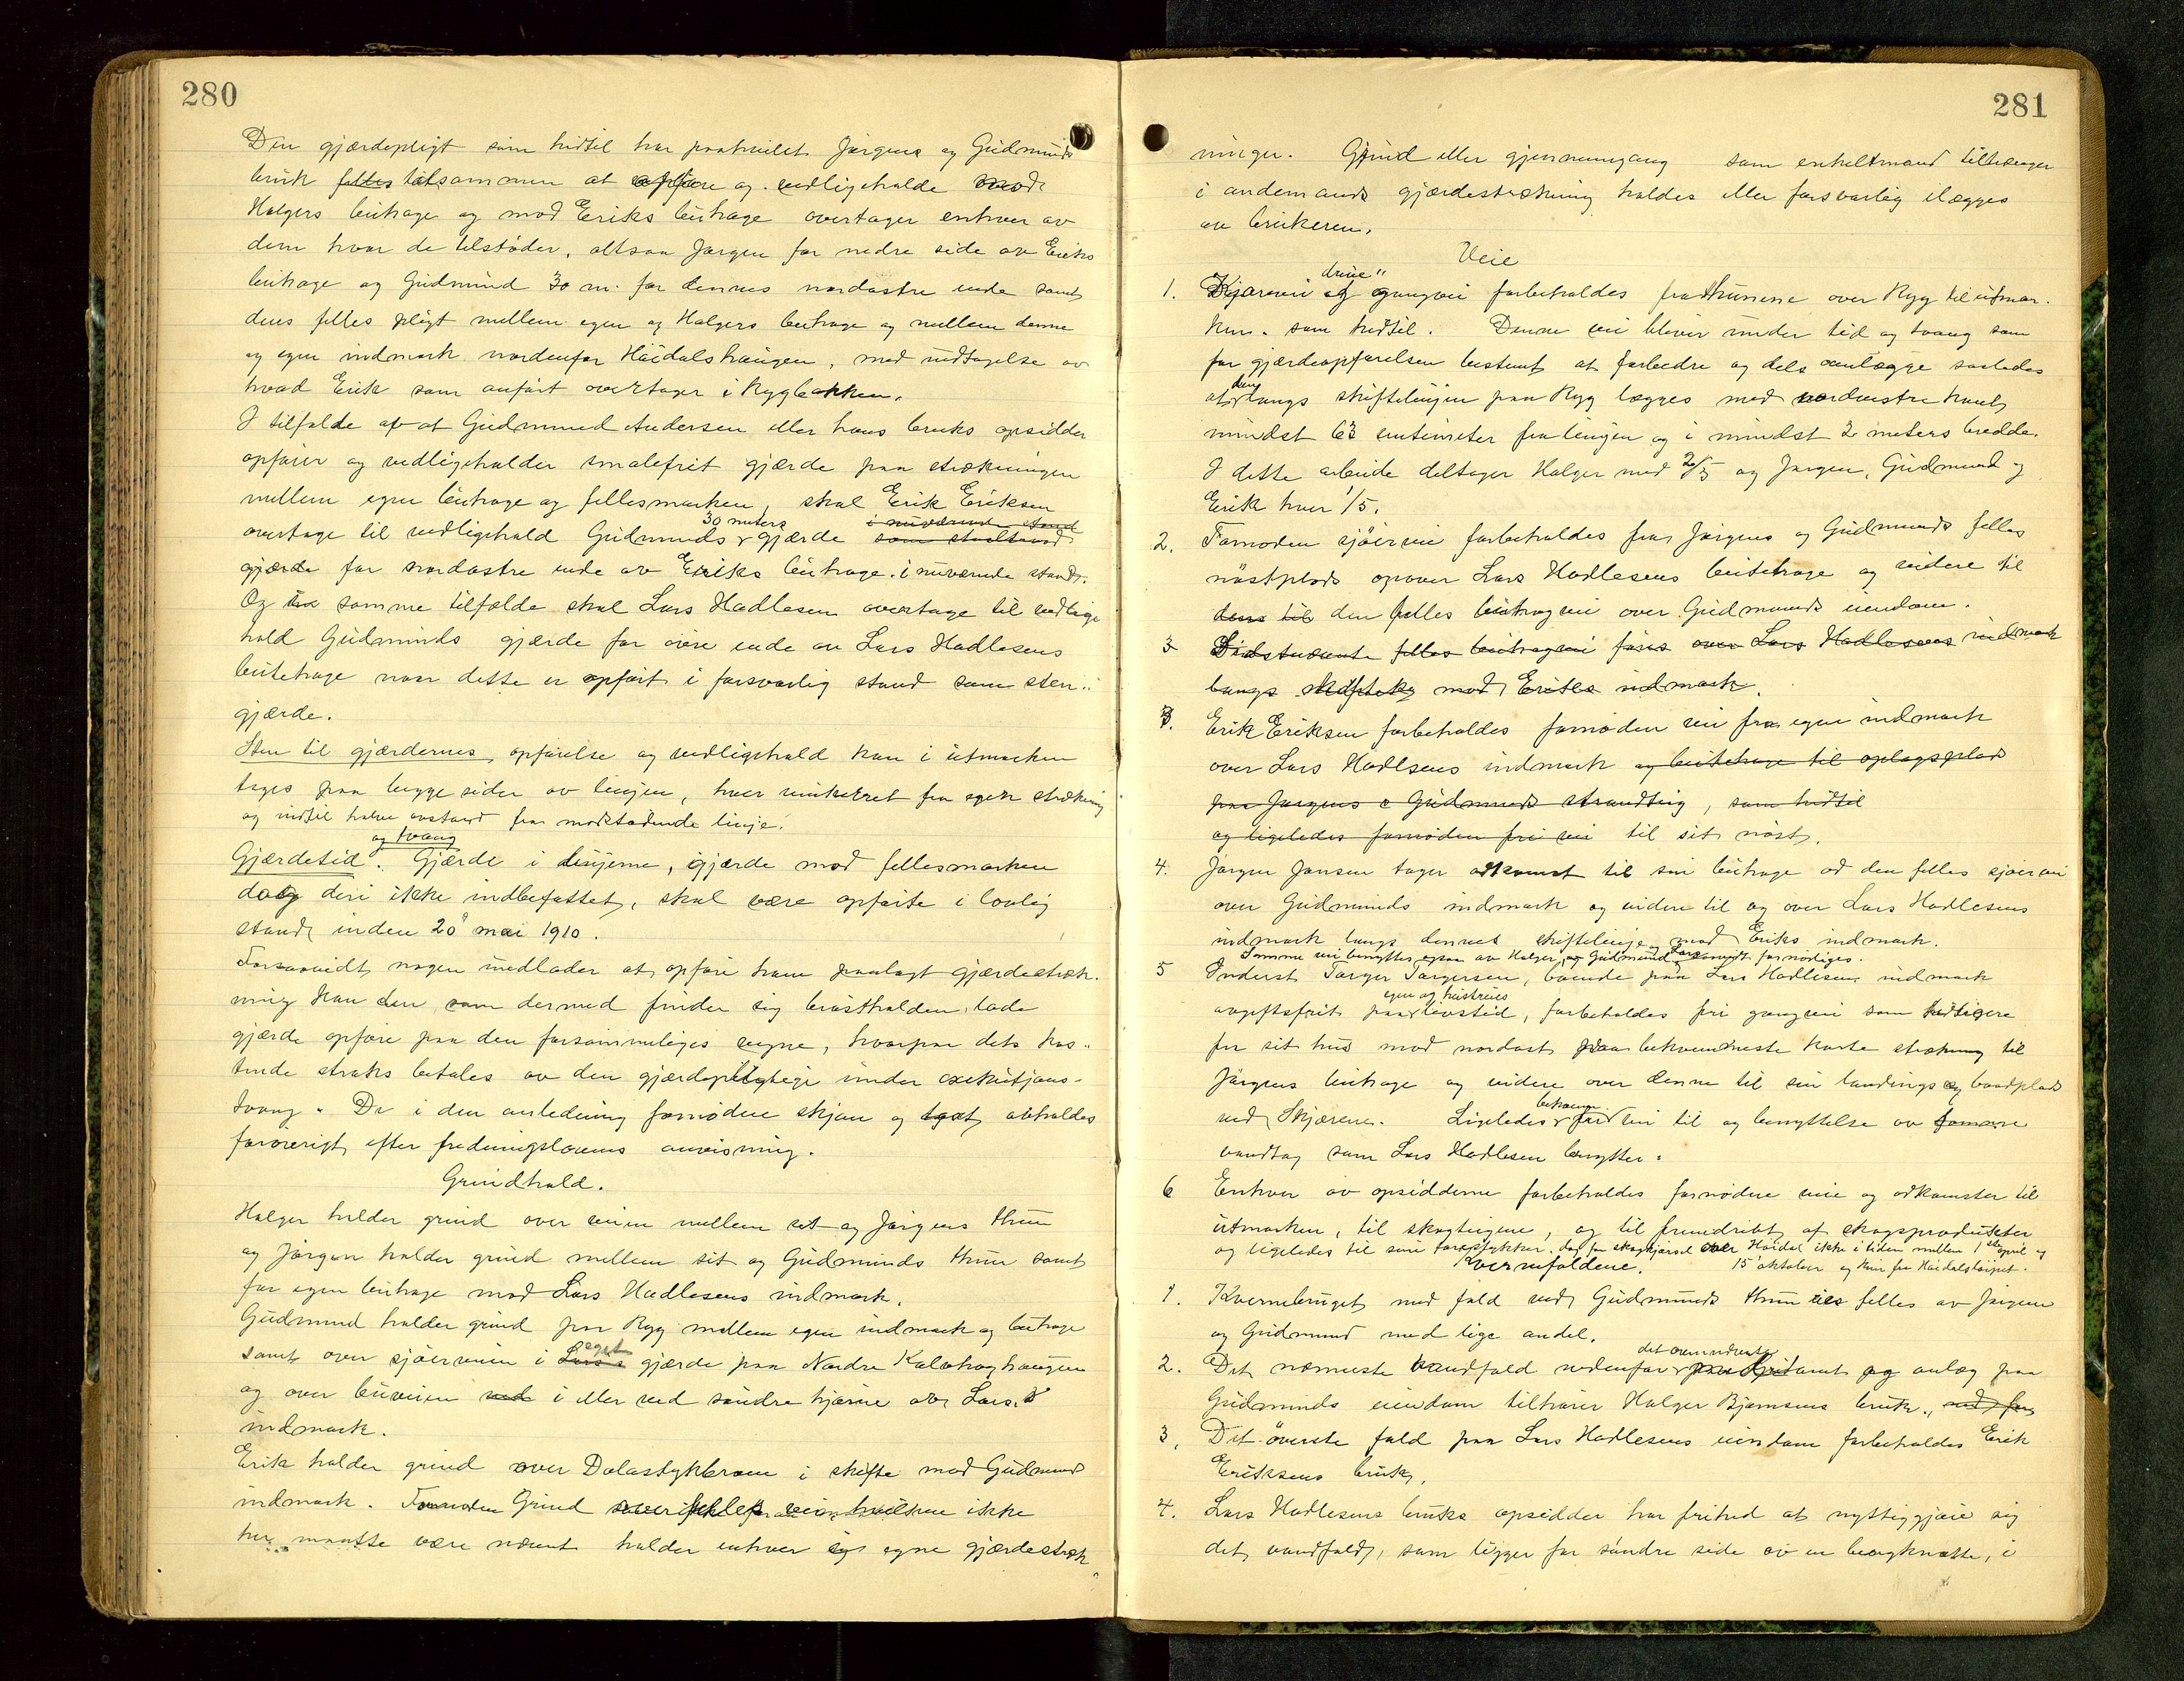 280
Den gjærdepligt som hidtil har paahvilet Jørgens og Gudmunds
bruk felles tilsammen at opføre og vedligeholde mod
Holgers beitrage og mod Eriks beitrage overtager enhver av
dem hvor de tilstøder, altsaa Jørgen for nedre side av Eriks
beitrage og Gudmund 30 m. for dennes nordøstre ende samt
dens felles pligt mellem egen og Holgers beitrage og mellem denne
og egen indmark nordenfor Høidalshaugen, med undtagelse av
hvad Erik som anført overtager i Rygbakken.
I tilfælde af at Gudmund Andersen eller hans bruks opsidder
opfører og vedligeholder smalefrit gjærde paa strækningen
mellem egen beitrage og fellesmarken, skal Erik Eriksen
30 meters i nuværende stand
overtage til vedligehold Gudmunds gjærde som
gjærde for nordøstre ende av Eriks beitrage i nuværende stand.
Og i samme tilfælde skal Lars Hadlesen overtage til vedlige
hold Gudmunds gjærde for øvre ende av Lars Hadlesens
beitehage naar dette er opført i forsvarlig stand som sten-
gjærde.
Sten til gjærdernes opførelse og vedligehold kan i utmarken
tages paa begge sider av linjen, hver enkeltret fra egen strækning
og indtil halve avstand fra motstødende linje.
og tvang
Gjærdetid. Gjærde i linjerne, gjærde mod fellesmarken
dog deri ikke indbefattet, skal være opførte i lovlig
stand inden 20 mai 1910.
Forsaavidt nogen undlader at opføre ham paalagt gjærdestræk-
ning kan den, som dermed finder sig brøstholden, lade
gjærde opføre paa den forsømmeliges regne, hvorpaa dets kos-
tende straks betales av den gjærdepligtige under exekutions-
tvang. De i den anledning fornødne skjøn og takst avholdes
forøverigt efter fredningslovens anvisning.
Grindhold.
Holger holder grind over veien mellem sit og Jørgens thun
og Jørgen holder grind mellem sit og Gudmunds thun samt
for egen beitrage mod Lars Hadlesens indmark.
Gudmund holder grind paa Ryg mellem egen indmark og beitrage
eget
samt over sjøerveien i Lars's gjærde paa Nordre Kalvhaghaugen
og over buveien ved i eller ved søndre hjørne av Lars's
indmark.
Erik holder grind over Dalastykbroen i skifte mod Gudmunds
indmark. Fornøden Grind over felles vei, hvilken ikke
her maatte være nævnt holder enhver i egne gjærdestræk-
281
ninger. Grind eller gjennemgang som enkeltmand tiltrænger
i andenmands gjærdestrækning holdes eller forsvarlig ilægges
av brukeren.
Veie
drive"
1. Kjørevei og gangvei forbeholdes fra thunene over Ryg til utmar-
ken som hidtil. Denne vei bliver under tid og tvang som
for gjærdeopførelsen bestemt at forbedre og dels omlægge saaledes
den
at langs skiftelinjen paa Ryg lægges med nordvestre kant
mindst 63 centimeter fra linjen og i mindst 2 meters bredde.
I dette arbeide deltager Holger med 2/5 og Jørgen, Gudmund og
Erik hver 1/5.
2. Fornøden sjøervei forbeholdes fra Jørgens og Gudmunds felles
nøstplads opover Lars Hadlesens beitehage og videre til
dens til den felles beitragvei over Gudmunds eiendom.
3 Sidstnævnte felles beitragvei føres over Lars Hadlesens indmark
langs skifteke mod Eriks indmark.
3. Erik Eriksen forbeholdes fornøden vei fra egen indmark
over Lars Hadlesens indmark og beitehage til oplagsplads
paa Jørgens & Gudmunds strandteig, som hidtil
og ligeledes fornøden fri vei til sit nøst.
4. Jørgen Jansen tager adkomst til sin beitrage ad den felles sjøervei
over Gudmunds indmark og videre til og over Lars Hadlesens
indmark langs dennes skiftelinje mod Eriks indmark.
Samme vei benyttes ogsaa av Holger, og Gudmund, Lars saavidt fornødiges.
5 Inderst Torger Torgersen, boende paa Lars Hadlesens indmark
egen og hustrues
avgiftsfrit paa livstid, forbeholdes fri gangvei som tidligere
fra sit hus mod nordost paa bekvemmeste korte strækning til
Jørgens beitrage og videre over denne til sin landings og baadplads
bekvem
ved Skjærene. Ligeledes fri vei til og benyttelse av
vandtag som Lars Hadlesen benytter.
6 Enhver av opsidderne forbeholdes fornødne veie og adkomster til
utmarken, til skogteigene, og til fremdrift af skogsprodukter
og ligeledes til sine torvstykker. dog for skogkjørsel over Høidal ikke i tiden mellem 1ste april og
15 oktober og kun for Høidalsløipet.
Kvernefaldene.
1. Kvernebruget med fald ved Gudmunds thun eies felles av Jørgen
og Gudmund med lige andel.
det ovennævnte
2. Det nærmeste vandfald nedenfor samt og anlæg paa
Gudmunds eiendom tilhører Holger Bjørnsens bruk.
3. Det øverste fald paa Lars Hadlesens eiendom forbeholdes Erik
Eriksens bruk.
4. Lars Hadlesens bruks opsidder har frihed at nyttiggjøre sig
det vandfald, som ligger for søndre side av en bergknatte, i